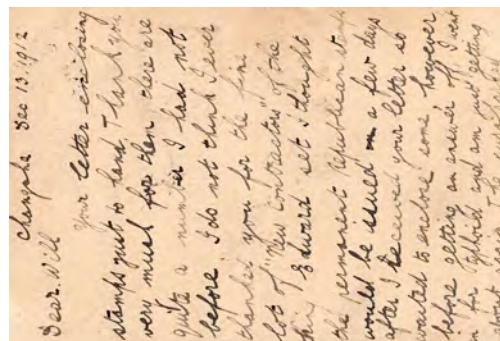 Changsha Dec 13. 1912
Dear Will
Your letter enclosing
stamps just to hand, Thank you
very much for them there are
quite a number I had not
before. I do not think I ever
thanked you for the fine
lot of "New Contractors" of the
King Edward set. I thought
the permanent Republican
would be issued in a few days
after I received your letter so
wanted to enclose some however
before getting an answer off I went
in for Typhoid and am just getting